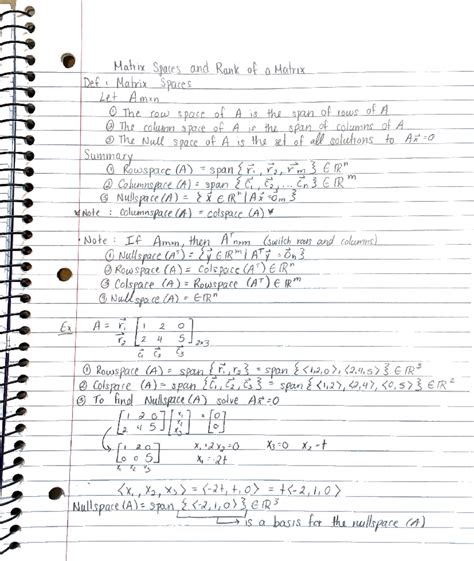 Matrix Spaces and Rank of a Matrix
Def: Matrix Spaces
Let Amxn
① The row space of A is the span of rows of A
② The column space of A is the span of columns of A
③ The Null space of A is the set of all solutions to Ax⃗=0
Summary
① Rowspace (A) = span { r⃗₁, r⃗₂, r⃗m } ∈ ℝⁿ
② Columnspace (A) = span { c⃗₁, c⃗₂, ... c⃗n } ∈ ℝᵐ
③ Nullspace (A) = { x⃗ ∈ ℝⁿ | Ax⃗ = 0⃗m }
* Note: columnspace (A) = colspace (A) *
• Note: If Amxn, then Aᵀnxm (switch rows and columns)
① Nullspace (Aᵀ) = { y⃗ ∈ ℝᵐ | Aᵀy⃗ = 0⃗n }
② Rowspace (A) = Colspace (Aᵀ) ∈ ℝⁿ
③ Colspace (A) = Rowspace (Aᵀ) ∈ ℝᵐ
④ Nullspace (A) = ∈ ℝⁿ
Ex A = r⃗₁ [ 1 2 0
r⃗₂ 2 4 5 ]2x3
c⃗₁ c⃗₂ c⃗₃
① Rowspace (A) = span { r⃗₁, r⃗₂ } = span { <1,2,0>, <2,4,5> } ∈ ℝ³
② Colspace (A) = span { c⃗₁, c⃗₂, c⃗₃ } = span { <1,2>, <2,4>, <0,5> } ∈ ℝ²
③ To find Nullspace (A) solve Ax⃗=0⃗
[ 1 2 0 ; 2 4 5 ] [ x₁ ; x₂ ; x₃ ] = [ 0 ; 0 ]
[ 1 2 0 ; 0 0 5 ] x₁+2x₂=0 x₃=0 x₂=t
x₁ x₂ x₃ x₁=-2t
<x₁, x₂, x₃> = <-2t, t, 0> = t<-2,1,0>
Nullspace (A) = span { <-2,1,0> } ∈ ℝ³
→ is a basis for the nullspace (A)